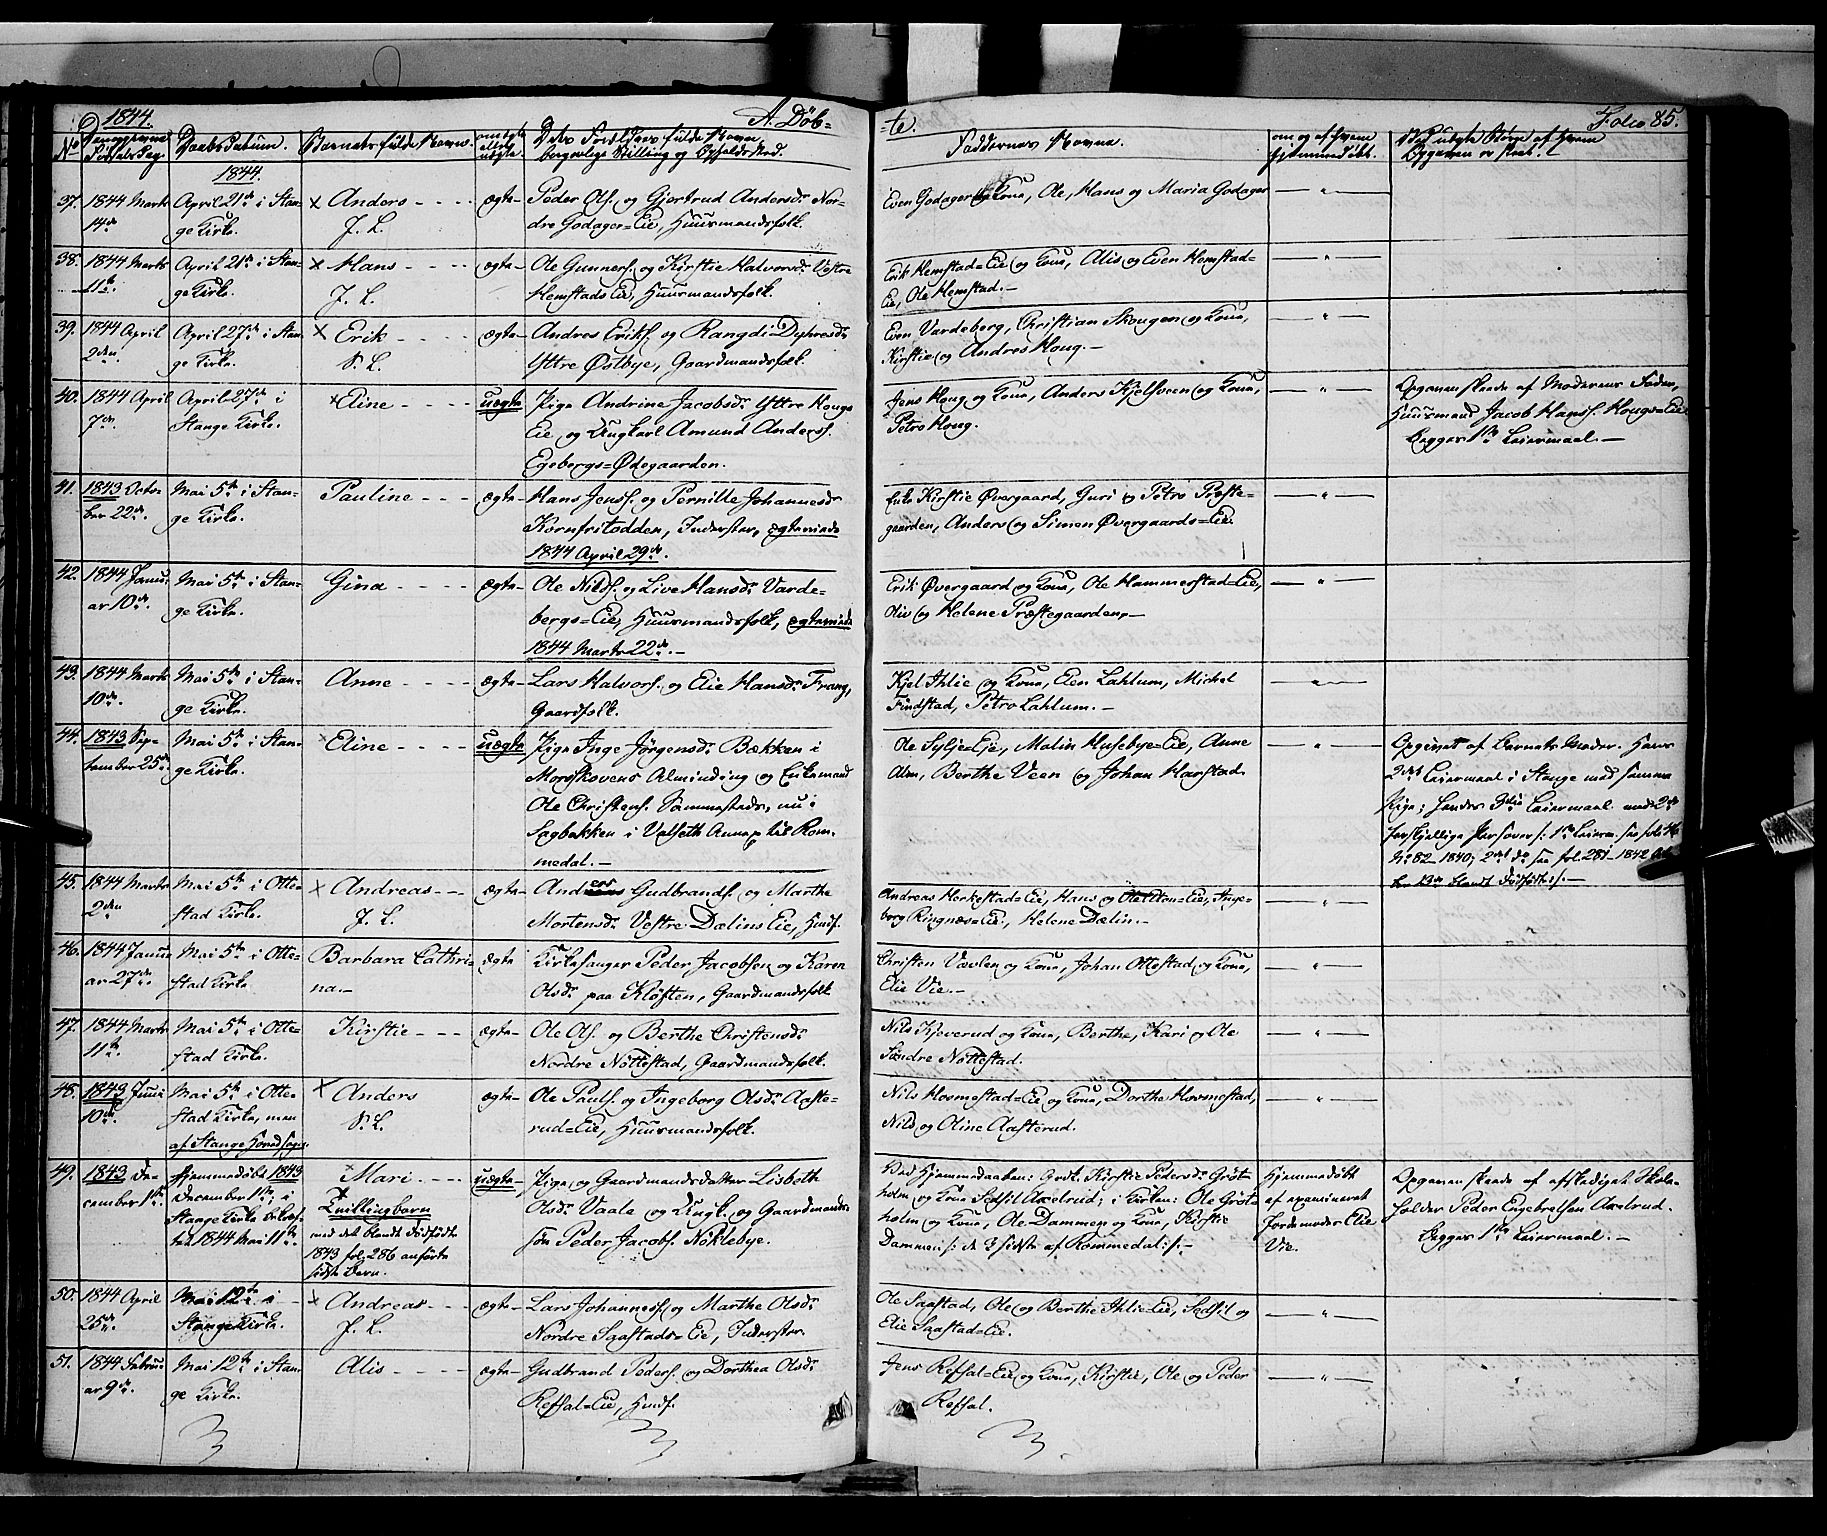 1844.
A. Döb=
=te.
Folio 85.
No
Drengenes Födsels Dag
Daabs Datum.
Barnets fulde Navn.
om ægte eller uægte.
Dets Forældres fulde Navn
borgerlige Stilling og Opholds Sted.
Faddernes Navne.
om og af hvem
hjemmedöbt.
Ved uægte Börn af hvem
Opgaven er skeet.
1844.
37. 1844 Marts
14de
April 21de i Stan-
ge Kirke.
× Anders
J. L.
ægte
Peder Ols. og Gjertrud Andersdr Nor-
dre Godager=Eie, Huusmandsfolk.
Even Godager og Kone, Ole, Hans og Maria Godager
— " —
38. 1844 Marts
11te.
April 21de i Stan-
ge Kirke.
× Hans
J. L.
ægte
Ole Gunners. og Kirstie Halvorsdr Vestre
Hemstads Eie, Huusmandsfolk.
Erik Hemstad=Eie og Kone, Alis og Even Hemstad=
Eie, Ole Hemstad.
— " —
39. 1844 April
2den
April 27de i Stan-
ge Kirke.
× Erik
S. L.
ægte
Andres Eriks. og Rangdi Dyhresdr
Yttre Østbye, Gaardmandsfolk.
Even Vardeberg, Christian Skougen og Kone,
Kirstie og Andres Houg.
— " —
40. 1844 April
7de
April 27de i
Stange Kirke.
× Eline
uægte
Pige Andrine Jacobsdr Yttre Hougs
Eie og Ungkarl Amund Anders.
Egebergs=Ødegaarden.
Jens Houg og Kone, Anders Kjelsveen og Kone,
Petro Houg.
— " —
Opgaven skeede af Moderens Fader,
Huusmand Jacob Hans. Hougs=Eie
Begges 1ste Leiermaal.
41. 1843 Octo-
ber 22de.
Mai 5te i Stan-
ge Kirke.
Pauline
ægte
Hans Jens. og Pernille Johannesdr
Kornfristodden, Inderster, ægteviede
1844 April 29de.
Enke Kirstie Øvergaard, Guri og Petro Præste-
gaarden, Anders og Simen Øvergaards=Eie.
— " —
42. 1844 Janu-
ar 10de.
Mai 5te i Stan-
ge Kirke.
Gina
ægte
Ole Nilss. og Live Hansdr Varde-
bergs=Eie, Huusmandsfolk, ægteviede
1844 Marts 22de.
Erik Øvergaard og Kone, Ole Hammerstad=Eie,
Oliv og Helene Præstegaarden.
— " —
43. 1844 Marts
10de.
Mai 5te i Stan-
ge Kirke.
Anne
ægte
Lars Halvors. og Elie Hansdr Frang,
Gaardfolk.
Kjel Ihlie og Kone, Elen Lahlum, Michel
Findstad, Petro Lahlum.
— " —
44. 1843 Sep-
tember 25de.
Mai 5te i Stan-
ge Kirke.
× Eline
uægte
Pige Inge Jörgensdr Bækken i
Morskovens Alminding og Enkemand
Ole Christens. Sömmestads, nu i
Sagbakken i Valseth Annex til Rom-
medal.
Ole Sylje=Eje, Malin Husebye=Eie, Anne
Alm, Berthe Veen og Johan Harstad.
— " —
Opgivet af Barnets Moder. Hans
2det Leiermaal i Stange med samme
Pige; hendes 3die Leiermaal med 2de
forskjellige Personer: 1ste Leierm. see fol. 46
No 82 1840; 2det do see fol. 281 1842 Octo-
ber 13de blandt Dödfödte.
45. 1844 Marts
2den
Mai 5te i Otte-
stad Kirke.
× Andreas
J. L.
ægte
Anders Gudbrands. og Marthe
Mortensdr Vestre Dælins Eie, Huusf.
Andreas Horkestad=Eie, Hans og Ole Eton=Eie, Inge-
borg Ringnæs=Eie, Helene Dælin.
— " —
46. 1844 Janu-
ar 27de.
Mai 5te i Otte-
stad Kirke
Barbara Cathri-
na.
ægte
Kirkesanger Peder Jacobsen og Karen
Olsdr paa Klöften, Gaardmandsfolk
Christen Vævlen og Kone, Johan Ottestad og Kone,
Elie Vie.
— " —
47. 1844 Marts
11te.
Mai 5te i Otte-
stad Kirke.
Kirstie
ægte
Ole Ols. og Berthe Christensdr
Nordre Nöttestad, Gaardmandsfolk.
Nils Kjeverud og Kone, Berthe, Kari og Ole
Söndre Nöttestad.
— " —
48. 1843 Juni
10de
Mai 5te i Otte-
stad Kirke, men
af Stange Hovedsogn.
× Anders
S. L.
ægte
Ole Pauls. og Ingeborg Olsdr Aaste-
rud=Eie, Huusmandsfolk.
Nils Hommestad=Eie og Kone, Dorthe Hommestad,
Nils og Oline Aasterud.
— " —
49. 1843 De-
cember 11te.
Hjemmedöbt 1843
December 11te; i
Stange Kirke bekræf-
tet 1844 Mai 11te.
× Mari
Tvillingbarn
med det blandt Dödfödte
1843 fol. 286 anförte
sidste Barn.
uægte
Pige og Gaardmandsdatter Lisbeth
Olsdr Vaale og Ungk. og Gaardmands-
sön Peder Jacobs. Nöklebye.
Ved Hjemmedaaben: Grdt. Kirstie Pedersdr Gröt-
holm og Kone Sidsil Axelrud; i Kirken: Ole Gröt-
holm og Kone, Ole Dammen og Kone, Kirstie
Dammen /: de 3 sidste af Rommedal :/.
Hjemmedöbt
af examineret
Jordemoder Elie
Vie.
Opgaven skeede af afskediget Skole-
holder Peder Engebretsen Axelrud.
Begges 1ste Leiermaal.
50. 1844 April
25de.
Mai 12te i
Stange Kirke.
× Andreas
J. L.
ægte
Lars Johanness. og Marthe Olsdr
Nordre Saastads=Eie, Inderster
Ole Saastad, Ole og Berthe Ihlie=Eie, Sidsil og
Elie Saastad=Eie.
— " —
51. 1844 Febru-
ar 9de.
Mai 12te i Stan-
ge Kirke.
Alis
ægte
Gudbrand Peders. og Dorthea Olsdr
Refsal=Eie, Huusf.
Jens Refsal=Eie og Kone, Kirstie, Ole og Peder
Refsal.
— " —